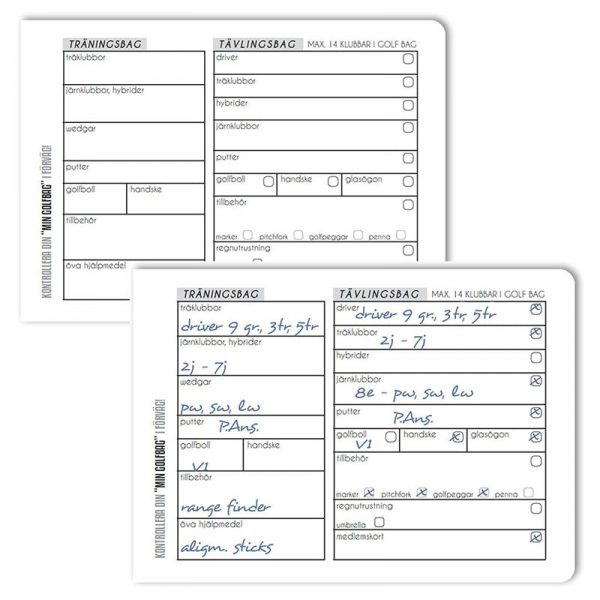 TRÄNINGSBAG
träklubbor
järnklubbor, hybrider
wedgar
putter
golfboll handske
tillbehör
öva hjälpmedel
TÄVLINGSBAG MAX. 14 KLUBBAR I GOLF BAG
driver
träklubbor
hybrider
järnklubbor
putter
golfboll handske glasögon
tillbehör
marker pitchfork golfpeggar penna
regnutrustning
KONTROLLERA DIN "MIN GOLFBAG" I FÖRVÄG!
TRÄNINGSBAG
träklubbor
driver 9 gr., 3tr, 5tr
järnklubbor, hybrider
2j - 7j
wedgar
pw, sw, lw
putter P.Ans.
golfboll handske
V1
tillbehör
range finder
öva hjälpmedel
alignm. sticks
TÄVLINGSBAG MAX. 14 KLUBBAR I GOLF BAG
driver
driver 9 gr., 3tr, 5tr
träklubbor
2j - 7j
hybrider
järnklubbor
8e - pw, sw, lw
putter
P.Ans.
golfboll handske glasögon
V1
tillbehör
marker pitchfork golfpeggar penna
regnutrustning
umbrella
medlemskort
KONTROLLERA DIN "MIN GOLFBAG" I FÖRVÄG!